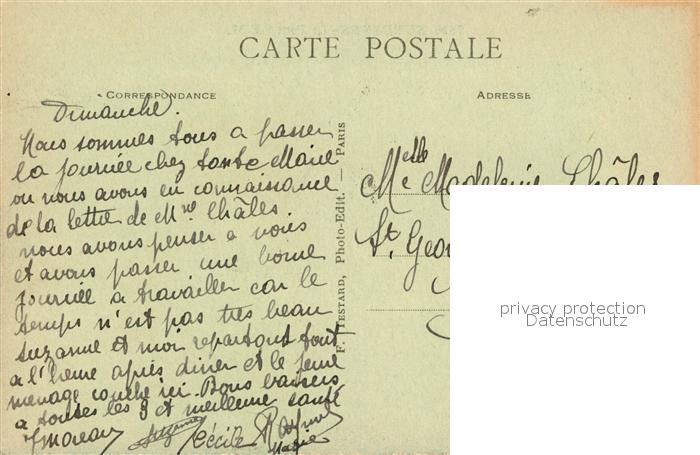 CARTE POSTALE
CORRESPONDANCE
ADRESSE
Dimanche.
Nous sommes tous a passer
la journée chez tante Marie
ou nous avons eu connaissance
de la lettre de Mme Châles.
nous avons penser a vous
et avons passer une bonne
journée a travailler car le
temps n'est pas très beau
suzanne et moi repartont tout
a l'heure après diner et le jeune
menage couche ici. Bons baisers
a toutes les 3 et meilleure santé
Cécile
F. TESTARD, Photo-Edit. — PARIS
Melle Madeleine Châles
St. Geor
privacy protection
Datenschutz